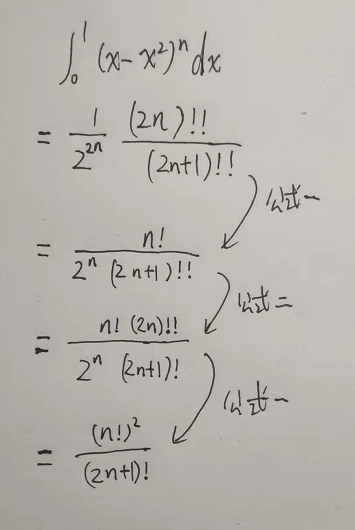 ∫₀¹ (x-x²)ⁿ dx
= 1/2²ⁿ (2n)!!/(2n+1)!!
公式一
= n!/2ⁿ (2n+1)!!
公式二
= n! (2n)!!/2ⁿ (2n+1)!
公式一
= (n!)²/(2n+1)!